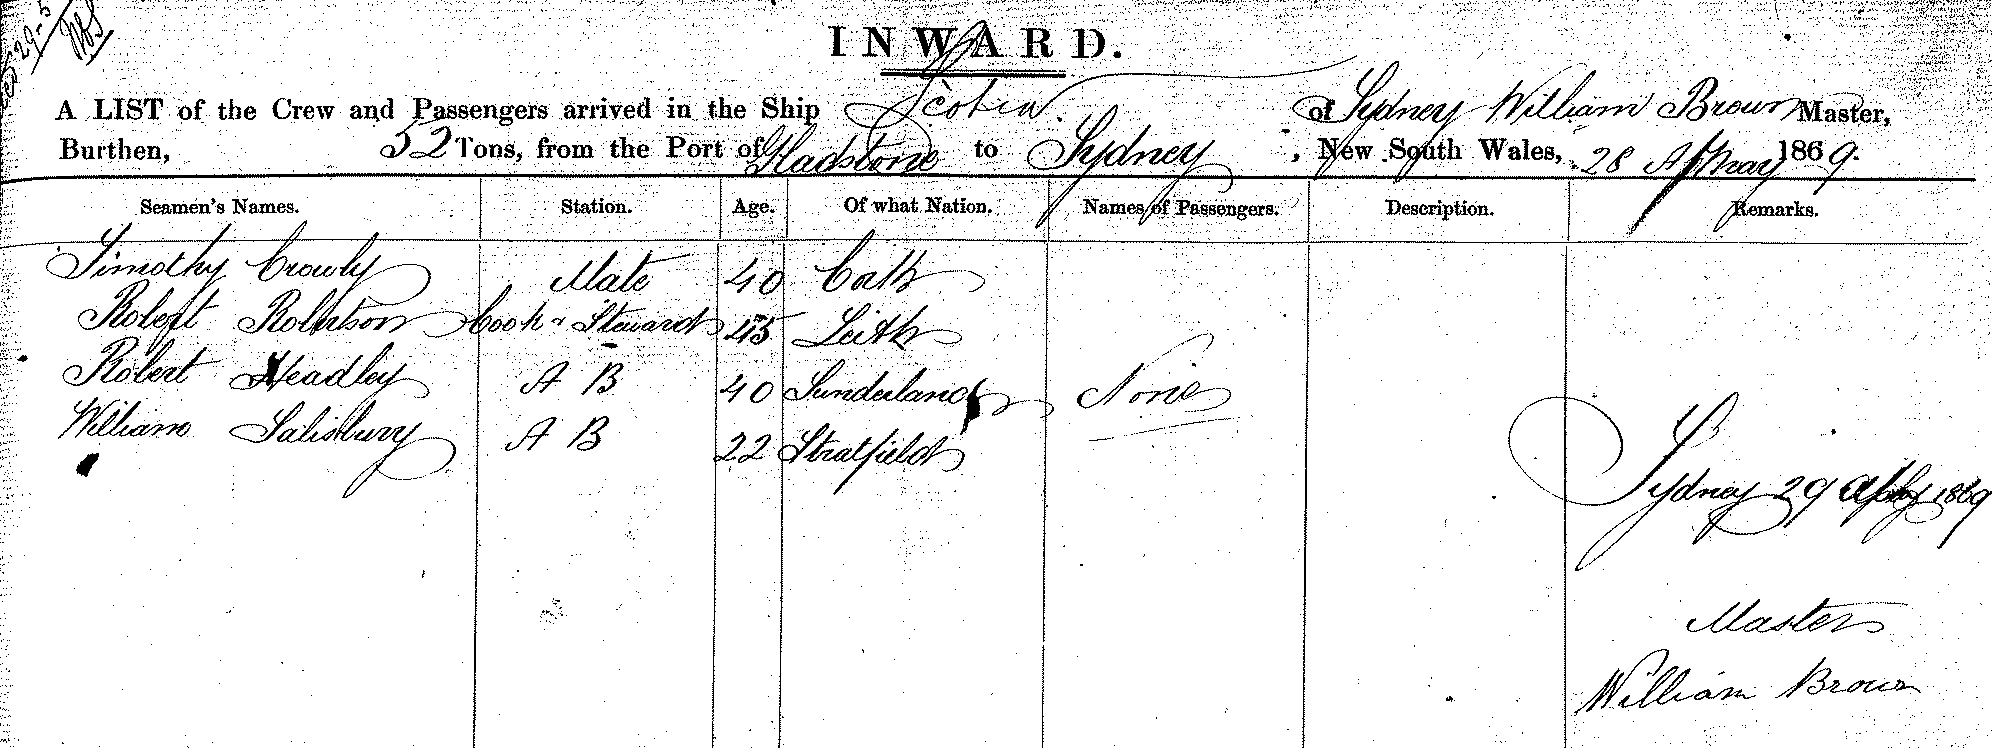 29-5
INWARD.
A LIST of the Crew and Passengers arrived in the Ship Scotia of Sydney William Brown Master,
Burthen, 52 Tons, from the Port of Gladstone to Sydney, New South Wales, 28 May 1869.
Seamen's Names. Station. Age. Of what Nation. Names of Passengers. Description. Remarks.
Timothy Crowly Mate 40 Cork
Robert Robertson Cook & Steward 45 Leith
Robert Headley A B 40 Sunderland None
William Salisbury A B 22 Stratfield
Sydney 29 1869
Master
William Brown